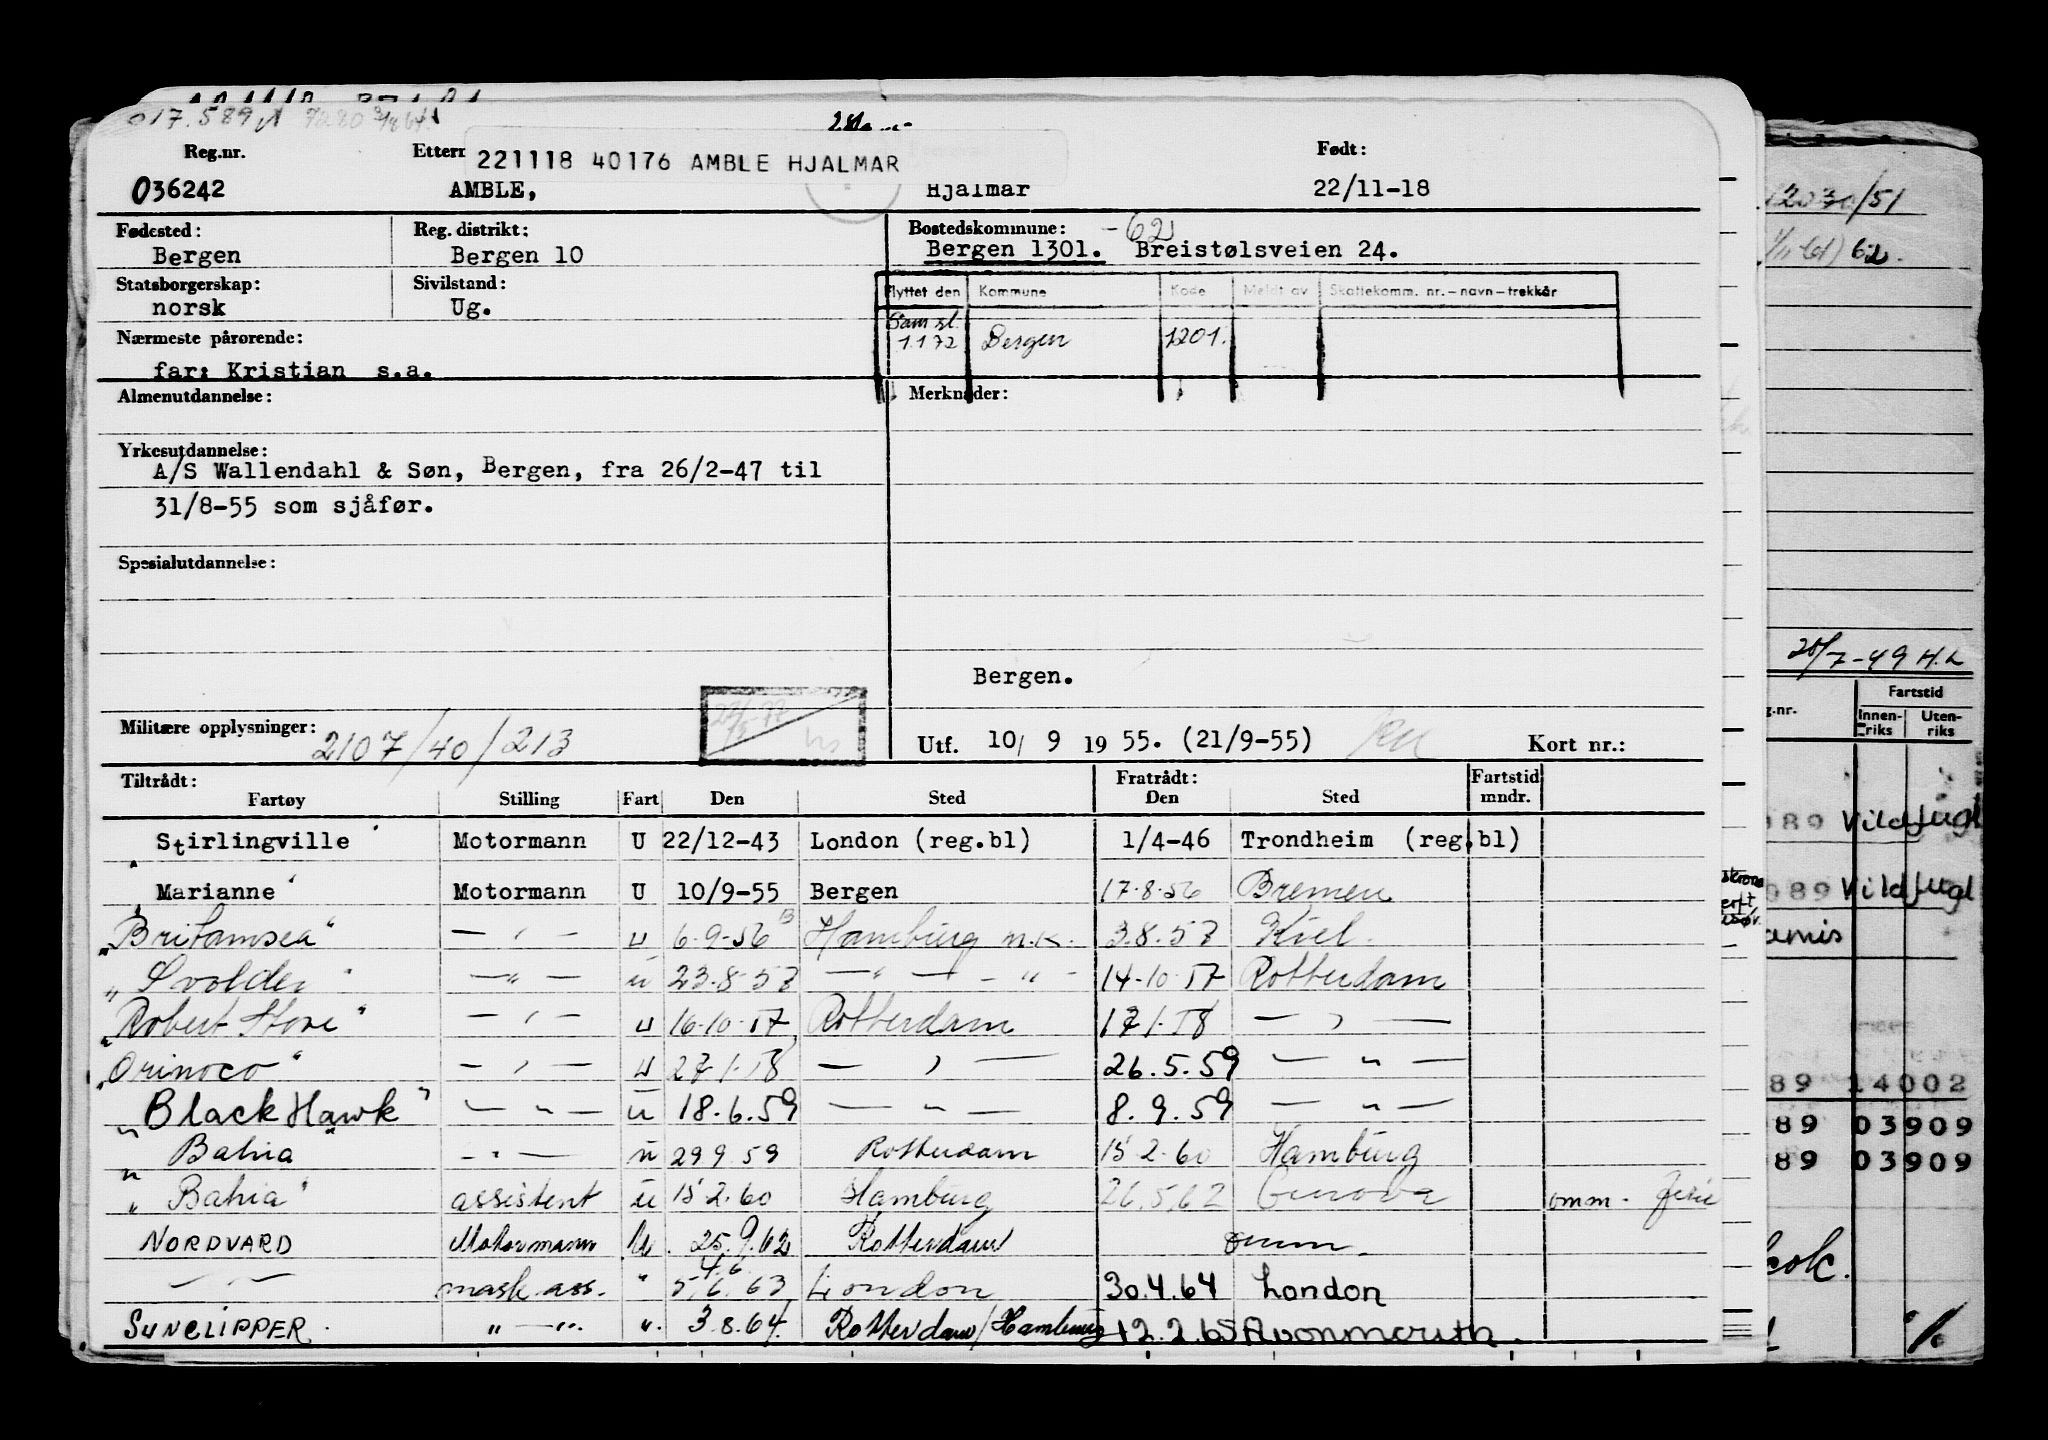 017.589
Reg.nr. Født:
221118 40176 AMBLE HJALMAR
036242 AMBLE, Hjalmar 22/11-18
Fødested: Reg. distrikt: Bostedskommune: -62
Bergen Bergen 10 Bergen 1301. Breistølsveien 24.
Statsborgerskap: Sivilstand: Flyttet den Kommune Kode Meldt av Skattekomm. nr. - navn - trekkår
norsk Ug.
Nærmeste pårørende: 1.1 72 Bergen 1201.
far: Kristian s.a.
Almenutdannelse: Merknader:
Yrkesutdannelse:
A/S Wallendahl & Søn, Bergen, fra 26/2-47 til
31/8-55 som sjåfør.
Spesialutdannelse:
Bergen.
Militære opplysninger: 2107/40/213
Utf. 10/ 9 19 55. (21/9-55) Kort nr.:
Tiltrådt: Fratrådt: Fartstid
Fartøy Stilling Fart Den Sted Den Sted mndr.
Stirlingville Motormann U 22/12-43 London (reg.bl) 1/4-46 Trondheim (reg.bl)
Marianne Motormann U 10/9-55 Bergen 17.8.56 Bremen
"Britamsea" — " — u 6.9-56 Hamburg n.k. 3.8.57 Kiel.
"Svolder" — " — u 23.8.57 — " — - " - 14-10-57 Rotterdam
"Robert Stove" — " — u 16.10.57 Rotterdam 17.1.58 — " —
"Orinoco" — " — u 27.1.58 — " — 26.5.59 — " —
"Black Hawk" — " — u 18.6.59 — " — 8.9.59 — " —
" Bahia - " — u 29 9.59 Rotterdam 15.2.60 Hamburg
" Bahia" assistent u 15.2.60 Hamburg 26.5.62 Genova omm. ferie
NORDVARD Motormann U. 25.9.62 Rotterdam omm.
— " — mask.ass. " 5.6.63 London 30.4.64 London
SUNCLIPPER. " — ". ". 3.8.64. Rotterdam/Hamburg 12.2.65 Avonmouth.
12030/51
62.
7-49 H.L
Fartstid
g.nr. Innen-riks Uten-riks
089 Vildfugl
089 Vildfugl
amis
89 14002
89 03909
89 03909
kok.